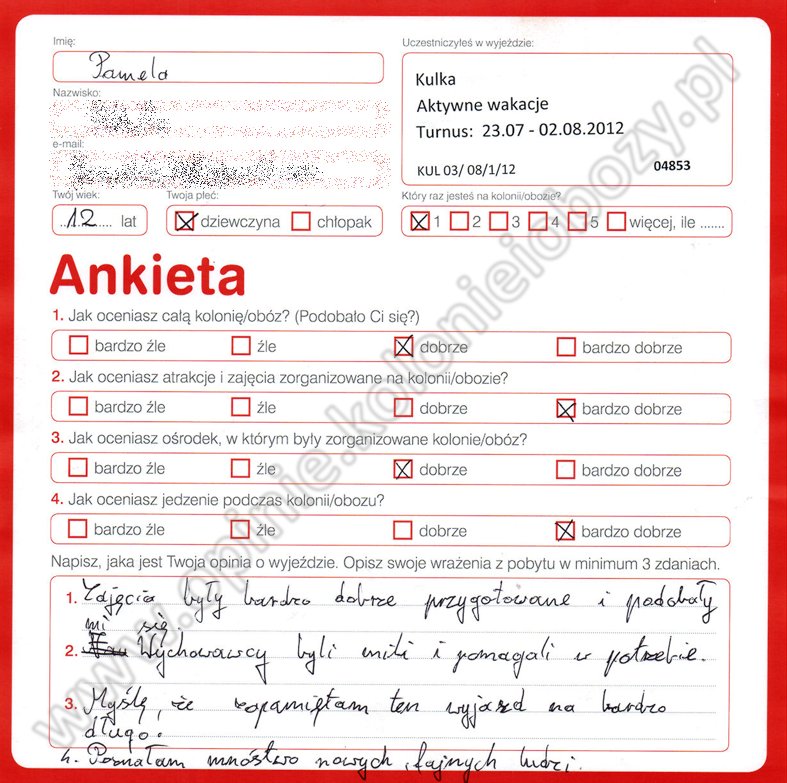 Imię:
Pamela
Uczestniczyłeś w wyjeździe:
Kulka
Aktywne wakacje
Turnus: 23.07 - 02.08.2012
KUL 03/ 08/1/12 04853
Nazwisko:
e-mail:
Twój wiek:
12 lat
Twoja płeć:
dziewczyna chłopak
Który raz jesteś na kolonii/obozie?
1 2 3 4 5 więcej, ile .......
Ankieta
1. Jak oceniasz całą kolonię/obóz? (Podobało Ci się?)
bardzo źle źle dobrze bardzo dobrze
2. Jak oceniasz atrakcje i zajęcia zorganizowane na kolonii/obozie?
bardzo źle źle dobrze bardzo dobrze
3. Jak oceniasz ośrodek, w którym były zorganizowane kolonie/obóz?
bardzo źle źle dobrze bardzo dobrze
4. Jak oceniasz jedzenie podczas kolonii/obozu?
bardzo źle źle dobrze bardzo dobrze
Napisz, jaka jest Twoja opinia o wyjeździe. Opisz swoje wrażenia z pobytu w minimum 3 zdaniach.
1. Zajęcia były bardzo dobrze przygotowane i podobały
mi się.
2. Wychowawcy byli mili i pomagali w potrzebie.
3. Myślę, że zapamiętam ten wyjazd na bardzo
długo.
4. Poznałam mnóstwo nowych, fajnych ludzi.
www.opinie.kolonieiobozy.pl